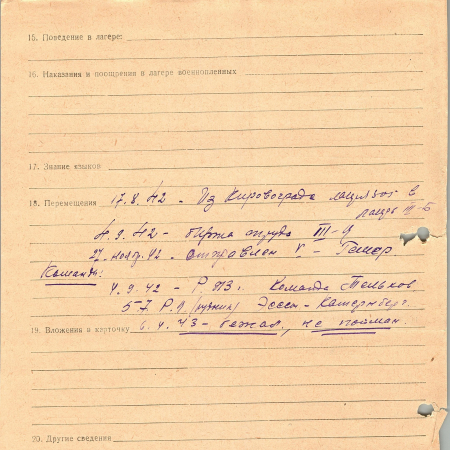 15. Поведение в лагере:
16. Наказания и поощрения в лагере военнопленных
17. Знание языков
18. Перемещения 17.8.42 - Из Кировограда в
лагерь III-Б
4.9.42 - биржа труда III-
27. 42. отправлен - Гемер
Команды:
4.9.42 - Р. 913. Команда
57 Р. Л. Эссен - Катернберг.
19. Вложения в карточку 6.4.43 - бежал, не пойман.
20. Другие сведения